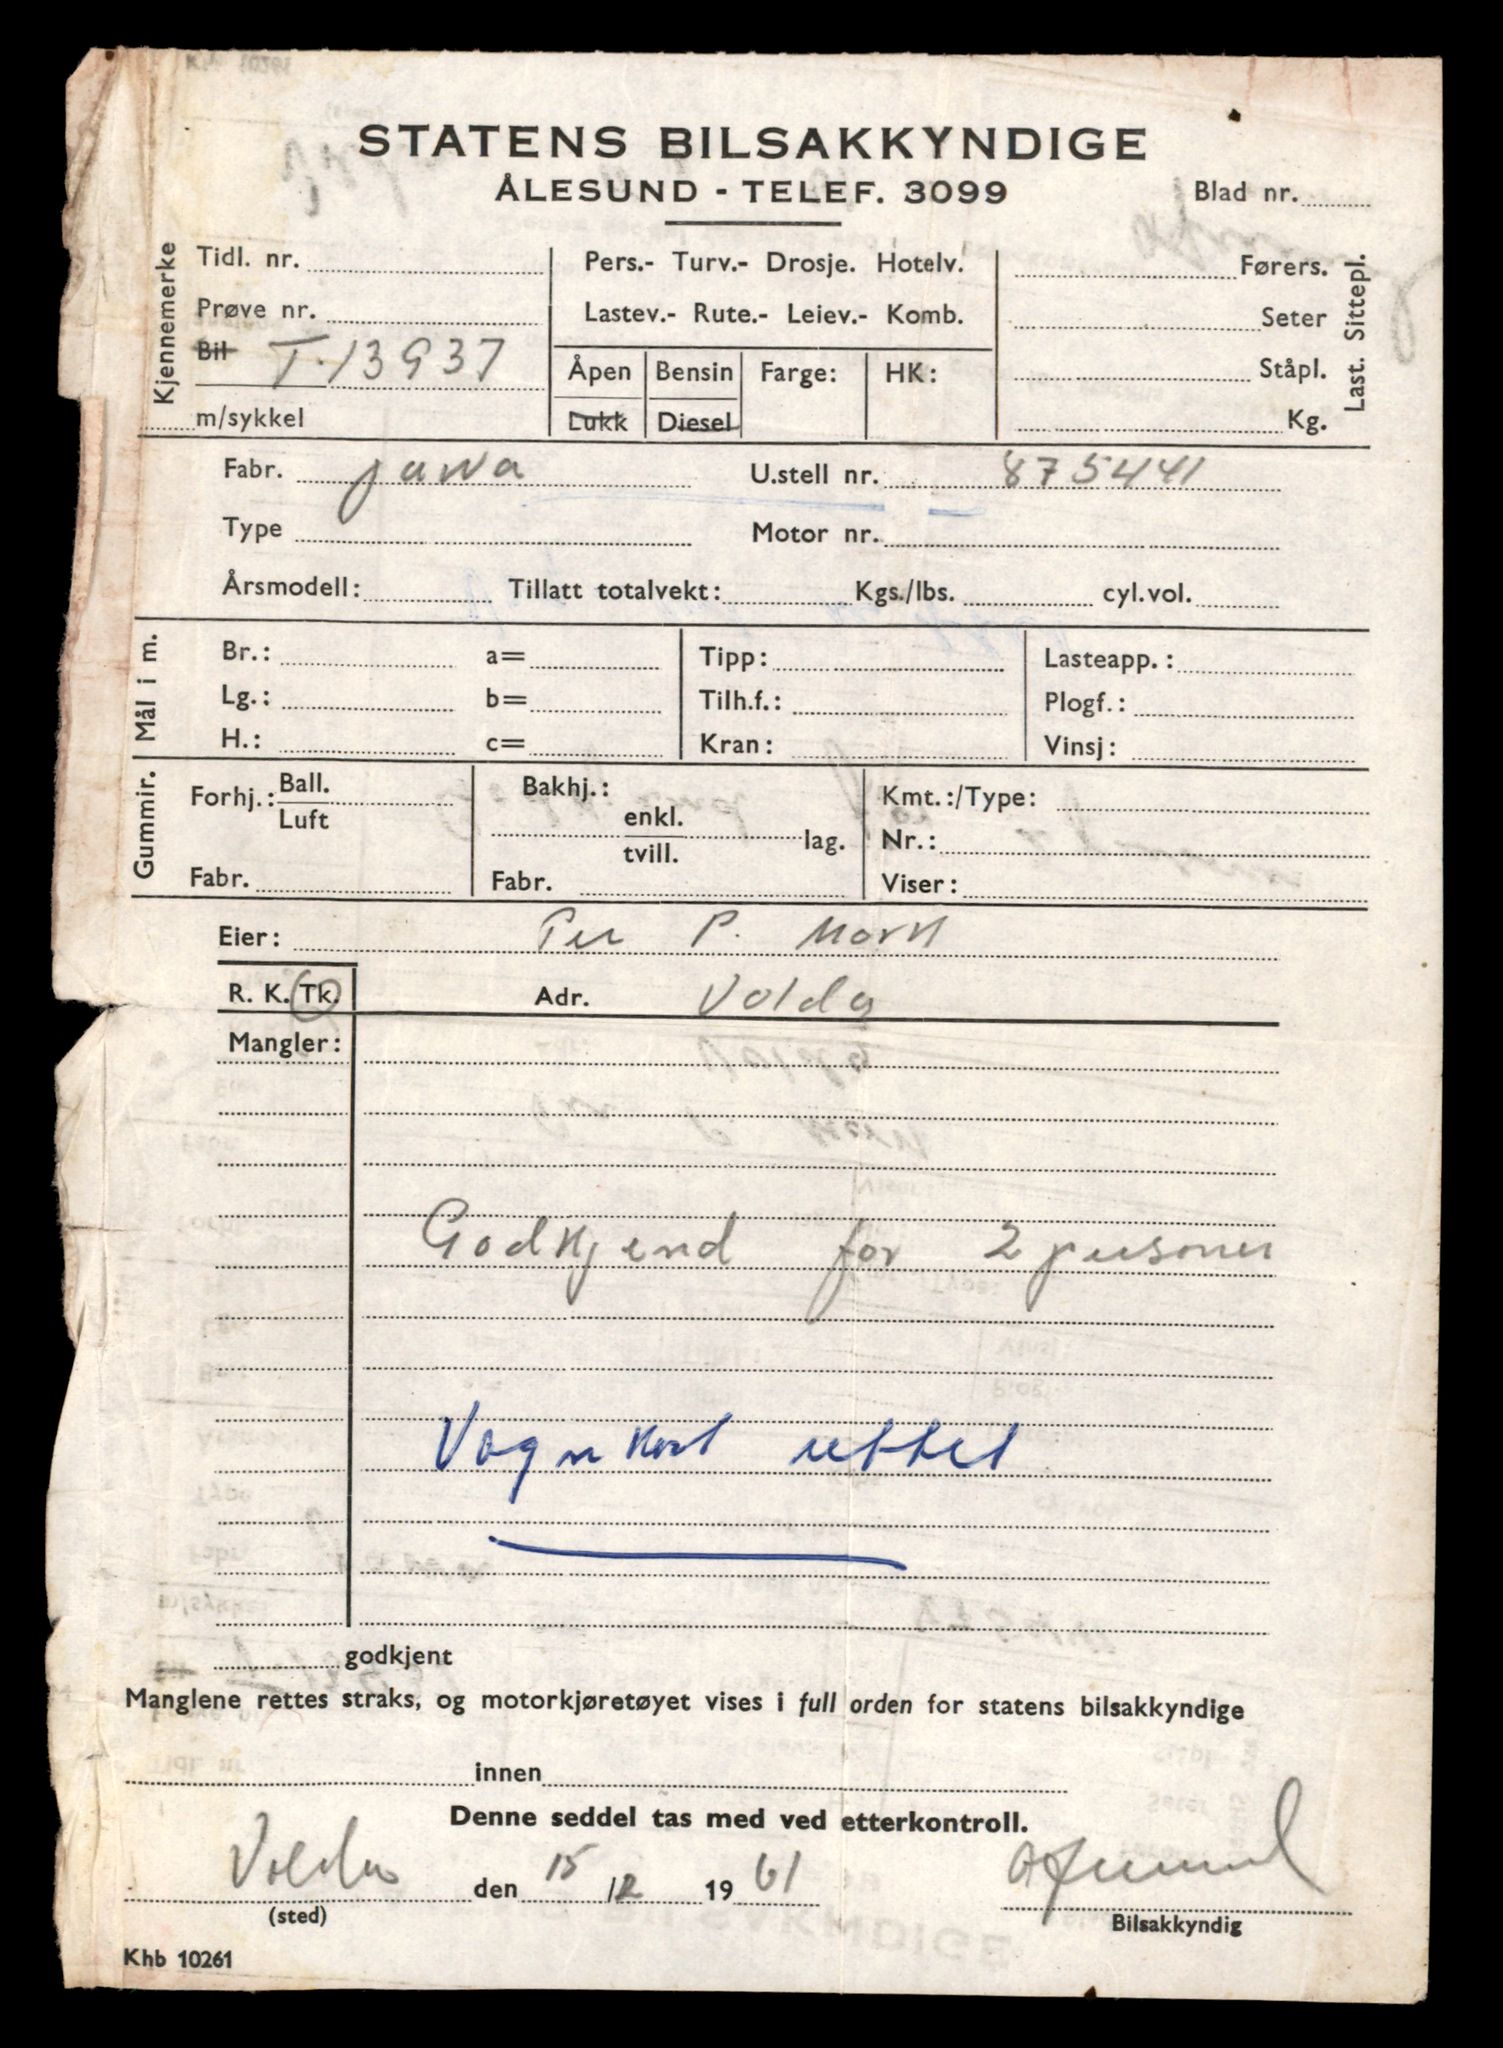 STATENS BILSAKKYNDIGE
ÅLESUND - TELEF. 3099
Blad nr.
Kjennemerke
Tidl. nr.
Prøve nr.
Bil T. 13937
m/sykkel
Pers.- Turv.- Drosje. Hotelv.
Lastev.- Rute.- Leiev.- Komb.
Åpen Bensin Farge: HK:
Lukk Diesel
Førers.
Seter
Ståpl.
Kg.
Last. Sittepl.
Fabr. Jawa U.stell nr. 875441
Type Motor nr.
Årsmodell: Tillatt totalvekt: Kgs./lbs. cyl.vol.
Mål i m.
Br.: a= Tipp: Lasteapp.:
Lg.: b= Tilh.f.: Plogf.:
H.: c= Kran: Vinsj:
Gummir.
Forhj.: Ball. Luft
Bakhj.:
enkl. tvill. lag.
Fabr. Fabr.
Kmt.:/Type:
Nr.:
Viser:
Eier: Per P. Mork
R. K. Tk. Adr. Volda
Mangler:
Godkjend for 2 personer
Vognkort rettet
godkjent
Manglene rettes straks, og motorkjøretøyet vises i full orden for statens bilsakkyndige
innen
Denne seddel tas med ved etterkontroll.
Volda den 15/12 1961
(sted) Bilsakkyndig
Khb 10261